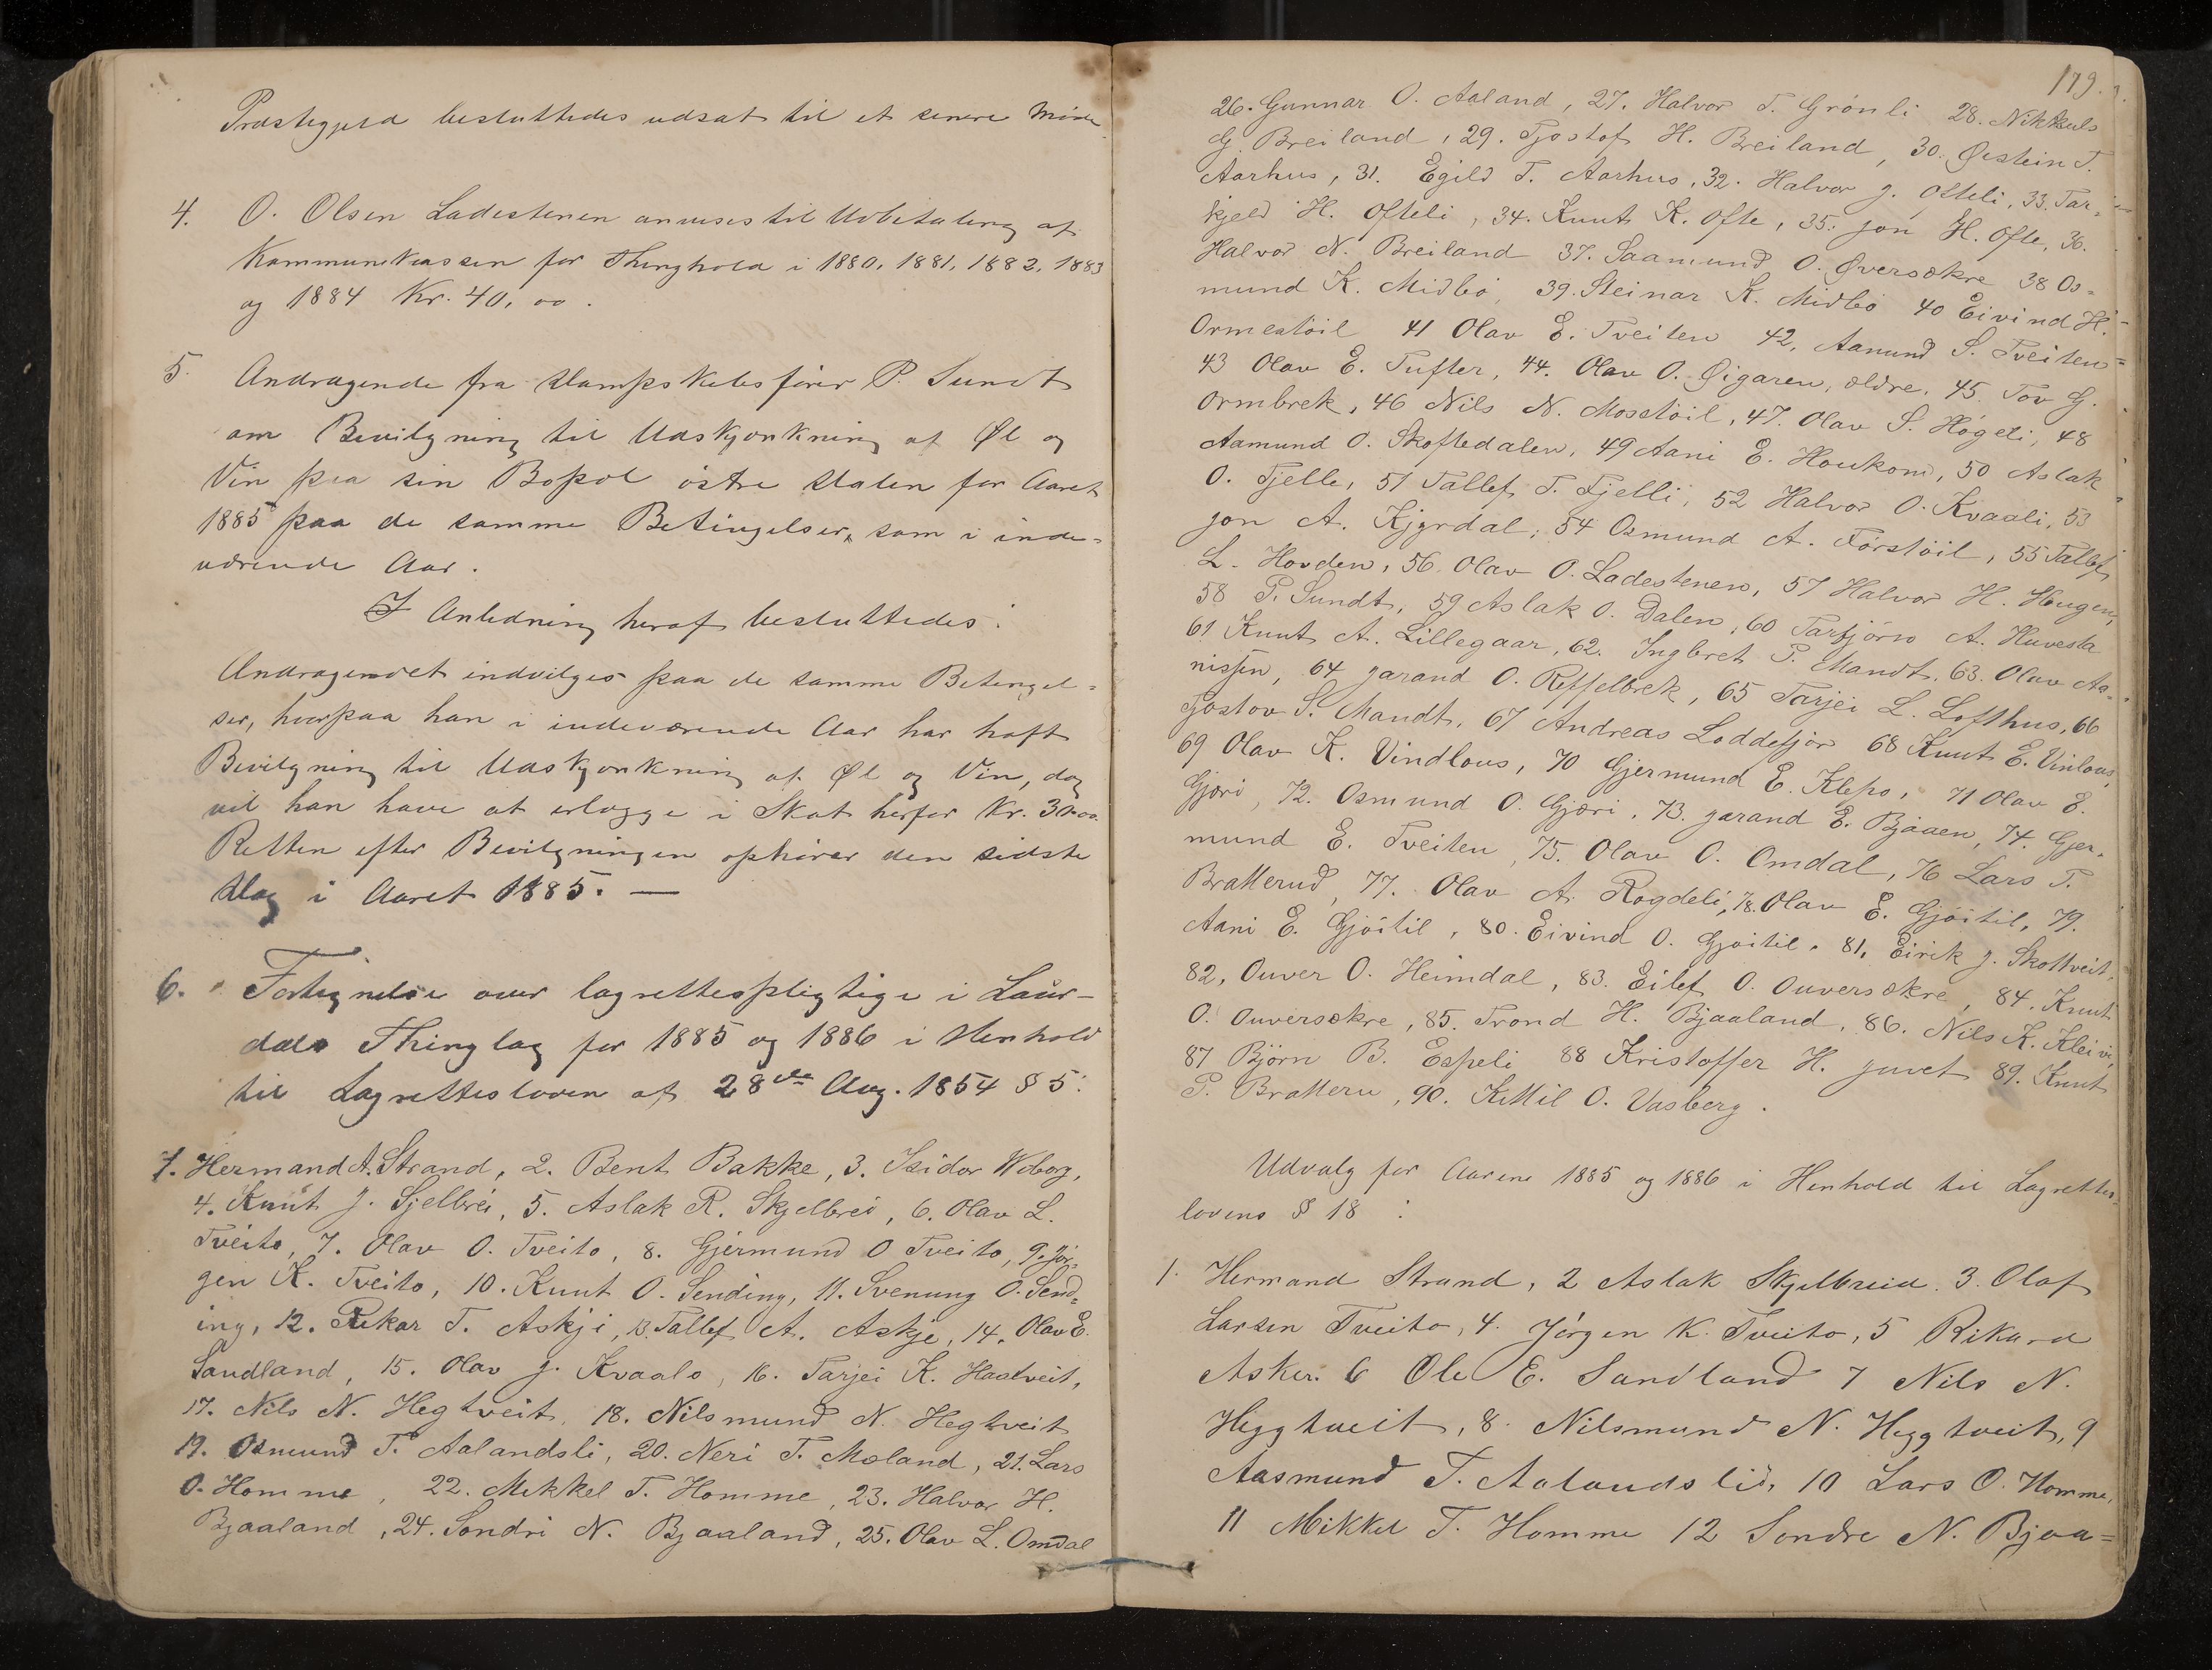 Præstegjeld besluttedes udsat til et senere Møde
4. O. Olsen Ladestenen anvises til Udbetaling af
Kommunekassen for Thinghold i 1880, 1881, 1882, 1883
og 1884 Kr. 40,00.
5. Andragende fra Dampskibsfører P. Sundt
om Bevilgning til Udskjænkning af Øl og
Vin paa sin Bopæl østre Dalen for Aaret
1885 paa de samme Betingelser, som i inde-
værende Aar.
I Anledning heraf besluttedes:
Andragendet indvilges paa de samme Betingel-
ser, hvorpaa han i indeværende Aar har haft
Bevilgning til Udskjænkning af Øl og Vin, dog
vil han have at erlægge i Skat herfor Kr.
Retten efter Bevilgningen ophører den sidste
Dag i Aaret 1885. —
6. Fortegnelse over lagrettespligtige i Laur-
dals Thinglag for 1885 og 1886 i Henhold
til Lagrettesloven af 28de Aug. 1854 § 5:
1. Hermand A. Strand, 2. Bent Bakke, 3. Isidor Wiborg,
4. Knut J. Sjelbrei, 5. Aslak R. Skjelbrei, 6. Olav L.
Tveito, 7. Olav O. Tveito, 8. Gjermund O Tveito, 9. Jør-
gen K. Tveito, 10. Knut O. Sending, 11. Svenung O. Send=
ing, 12. Rikar T. Askje, 13. Tallef A. Askje, 14. Olav E.
Sandland, 15. Olav J. Kvaalo, 16. Tarjei K. Hastveit,
17. Nils N. Hegtveit, 18. Nilsmund N. Hegtveit
19. Osmund T. Aalandsli, 20. Neri T. Moland, 21. Lars
O. Homme, 22. Mikkel T. Homme, 23. Halvor H.
Bjaaland, 24. Sondri N. Bjaaland, 25. Olav L. Omdal
179.
26. Gunnar O. Aaland, 27. Halvor T. Grønli 28. Nikkuls
G. Breiland, 29. Tjostof H. Breiland, 30. Øistein T.
Aarhus, 31. Egild T. Aarhus, 32. Halvor J. Ofteli, 33. Tar-
kjeld H. Ofteli, 34. Knut K. Ofte, 35. Jon H. Ofte, 36.
Halvor N. Breiland 37. Saamund O. Øversækre 38 Os-
mund K. Midbø, 39. Steinar K. Midbø 40 Eivind H.
Ormestøil 41 Olav E. Tveiten 42, Aanund S. Tveiten
43 Olav E. Tufter, 44. Olav O. Øigaren, ældre. 45. Tov G.
Ormbrek, 46 Nils N. Mosstøil, 47. Olav S. Høgeli, 48
Aamund O. Skoftedalen, 49 Aani E. Houkom, 50 Aslak
O. Tjelle, 51 Tallef T. Fjelli, 52 Halvor O. Kvaali, 53
Jon A. Kjyrdal, 54 Osmund A. Førstøil, 55 Tallef
L. Hovden, 56. Olav O. Ladestenen, 57 Halvor H. Hougen,
58 P. Sundt, 59 Aslak O. Dalen, 60 Tarfjørn A. Huvesta
61 Knut A. Lillegaar, 62. Ingbret P. Mandt. 63. Olav Aa-
nissen, 64 Jarand O. Reffelbrek, 65 Tarjei L. Lofthus, 66
Tjostov S. Mandt, 67 Andreas Loddefjør 68 Knut E. Vinlous,
69 Olav K. Vindlous, 70 Gjermund E. Klepo, 71 Olav E.
Gjøri, 72. Osmund O. Gjøri, 73. Jarand E. Bjaaen, 74. Gjer-
mund E. Tveiten, 75. Olav O. Omdal, 76 Lars T.
Bratterud, 77. Olav A. Rogdeli, 78. Olav E. Gjøitil, 79.
Aani E. Gjøitil, 80. Eivind O. Gjøitil. 81. Eirik J. Skottveit,
82, Ouver O. Heimdal, 83. Eilef O. Ouversækre, 84. Knut
O. Ouversækre, 85. Trond H. Bjaaland, 86. Nils K. Kleivi,
87 Bjørn B. Espeli 88 Kristoffer H. Juvet 89. Knut
P. Bratteru, 90. Kittil O. Vasberg.
Udvalg for Aarene 1885 og 1886 i Henhold til Lagrettes-
lovens § 18:
1. Hermand Strand, 2 Aslak Skjelbreid. 3. Olaf
Larsen Tveito, 4. Jørgen K. Tveito, 5 Rikard
Asker. 6 Ole E. Sandland 7 Nils N.
Heggtveit, 8. Nilsmund N. Heggtveit, 9
Aasmund T. Aalandslid, 10 Lars O. Homme,
11 Mikkel T. Homme 12 Sondre N. Bjaa=